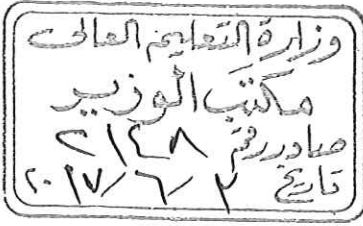 وزارة التعليم العالى
مكتب الوزير
صادر رقم ٢١٤٨
تاريخ ٢ / ٦ / ٢٠١٧